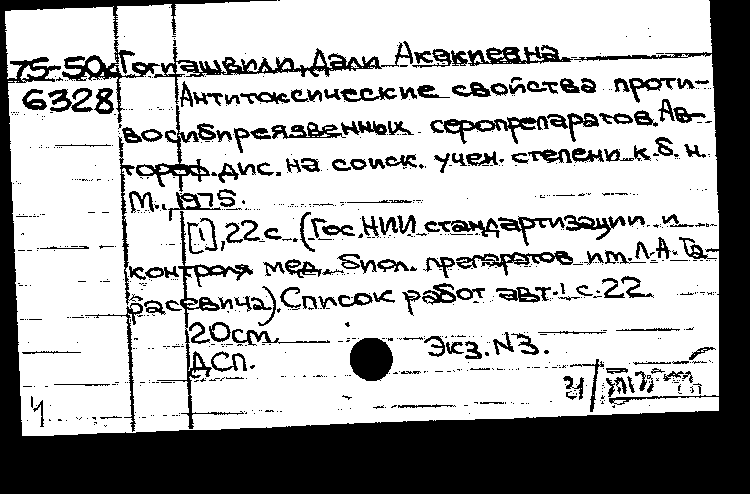 75-50к Гогиашвили, Дали Акакиевна.
6328 Антитоксические свойства проти-
восибиреязвенных серопрепаратов. Ав-
тореф. дис. на соиск. учен. степени к.б.н.
М., 1975.
[1], 22 с. (Гос. НИИ стандартизации и
контроля мед. биол. препаратов им. Л.А. Та-
расевича). Список работ авт.: с. 22
20 см.
ДСП. Экз. N3.